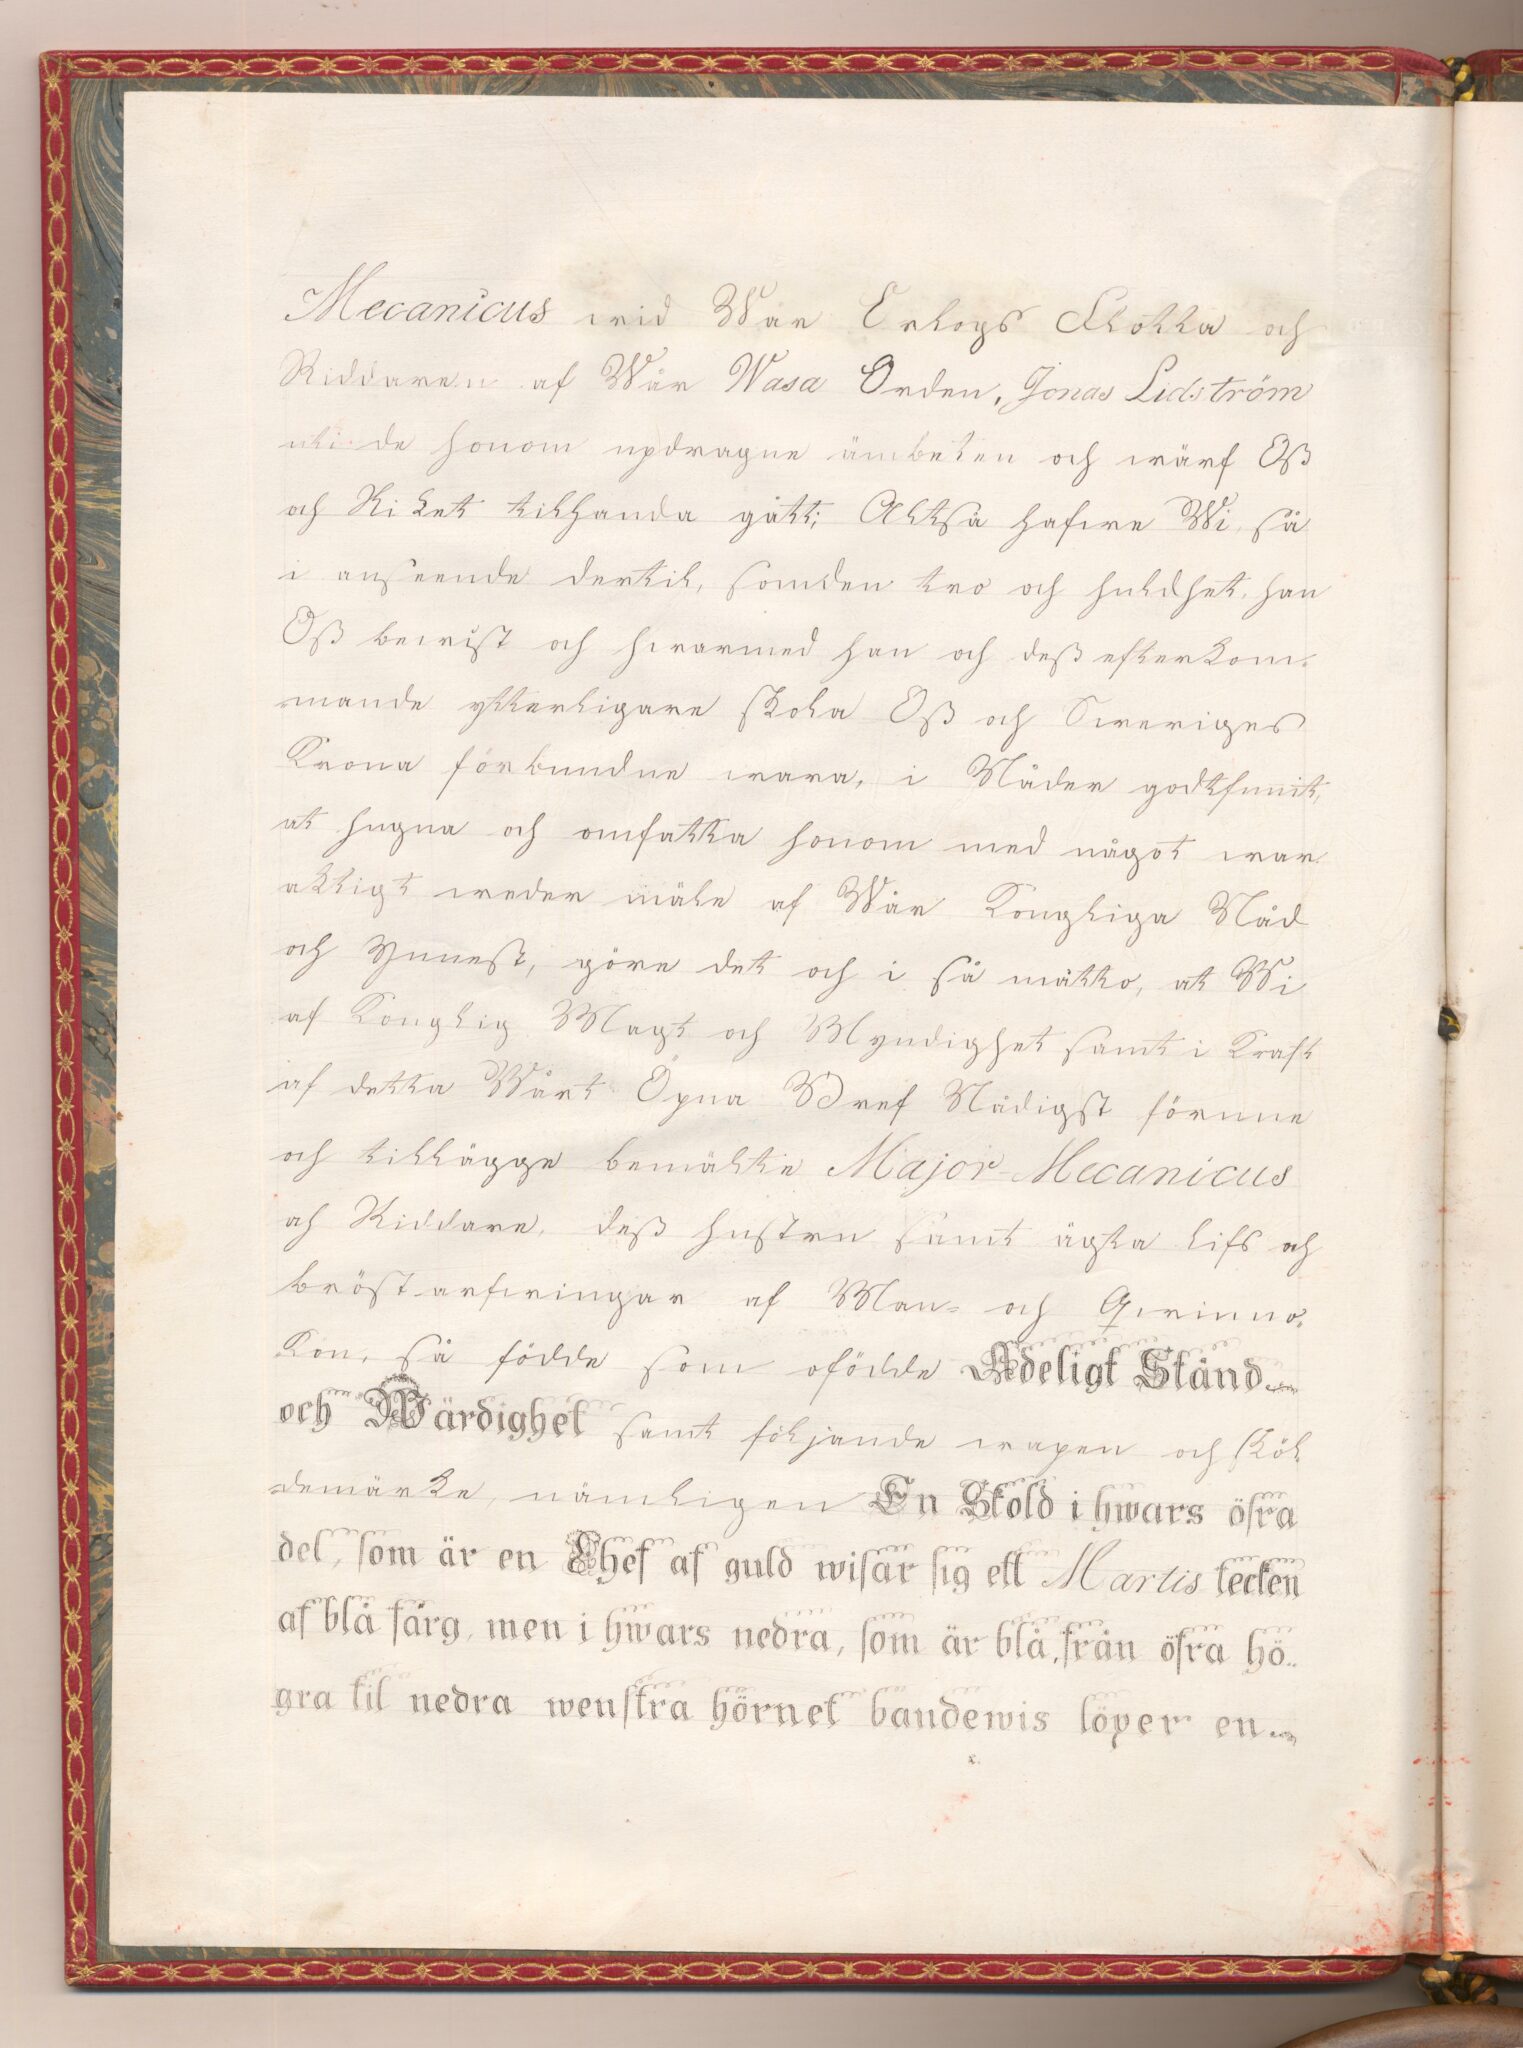 Mecanicus wid Wår Örlogs Flotta och
Riddaren af Wår Wasa Orden, Jonas Lidström
uti de honom updragne ämbeten och wärf Oß
och Riket tilhanda gått; Altså hafwe Wi, så
i anseende dertil, som den tro och huldhet, han
Oß bewist och hwarmed han och deß efterkom-
mande ytterligare skola Oß och Sweriges
Krona förbundne wara, i Nåder godtfunnit,
at hugna och omfatta honom med något war-
aktigt wedermäle af Wår Kongliga Nåd
och Ynnest, göre det och i så mått̶o, at Wi
af Konglig Magt och Myndighet samt i Kraft
af detta Wårt Öpna Bref Nådigst förunne
och tillägge bemälte Major-Mecanicus
och Riddare, deß hustru samt ägta lifs och
bröstarfwingar af Man- och Qwinno-
Kön, så födde som ofödde Adeligt Stånd
och Wärdighet samt följande wapen och sköl-
demärke, nämligen En Sköld i hwars öfra
del, som är en Chef af guld wisar sig ett Martis tecken
af blå färg, men i hwars nedra, som är blå, från öfra hö-
gra til nedra wenstra hörnet bandewis löper en